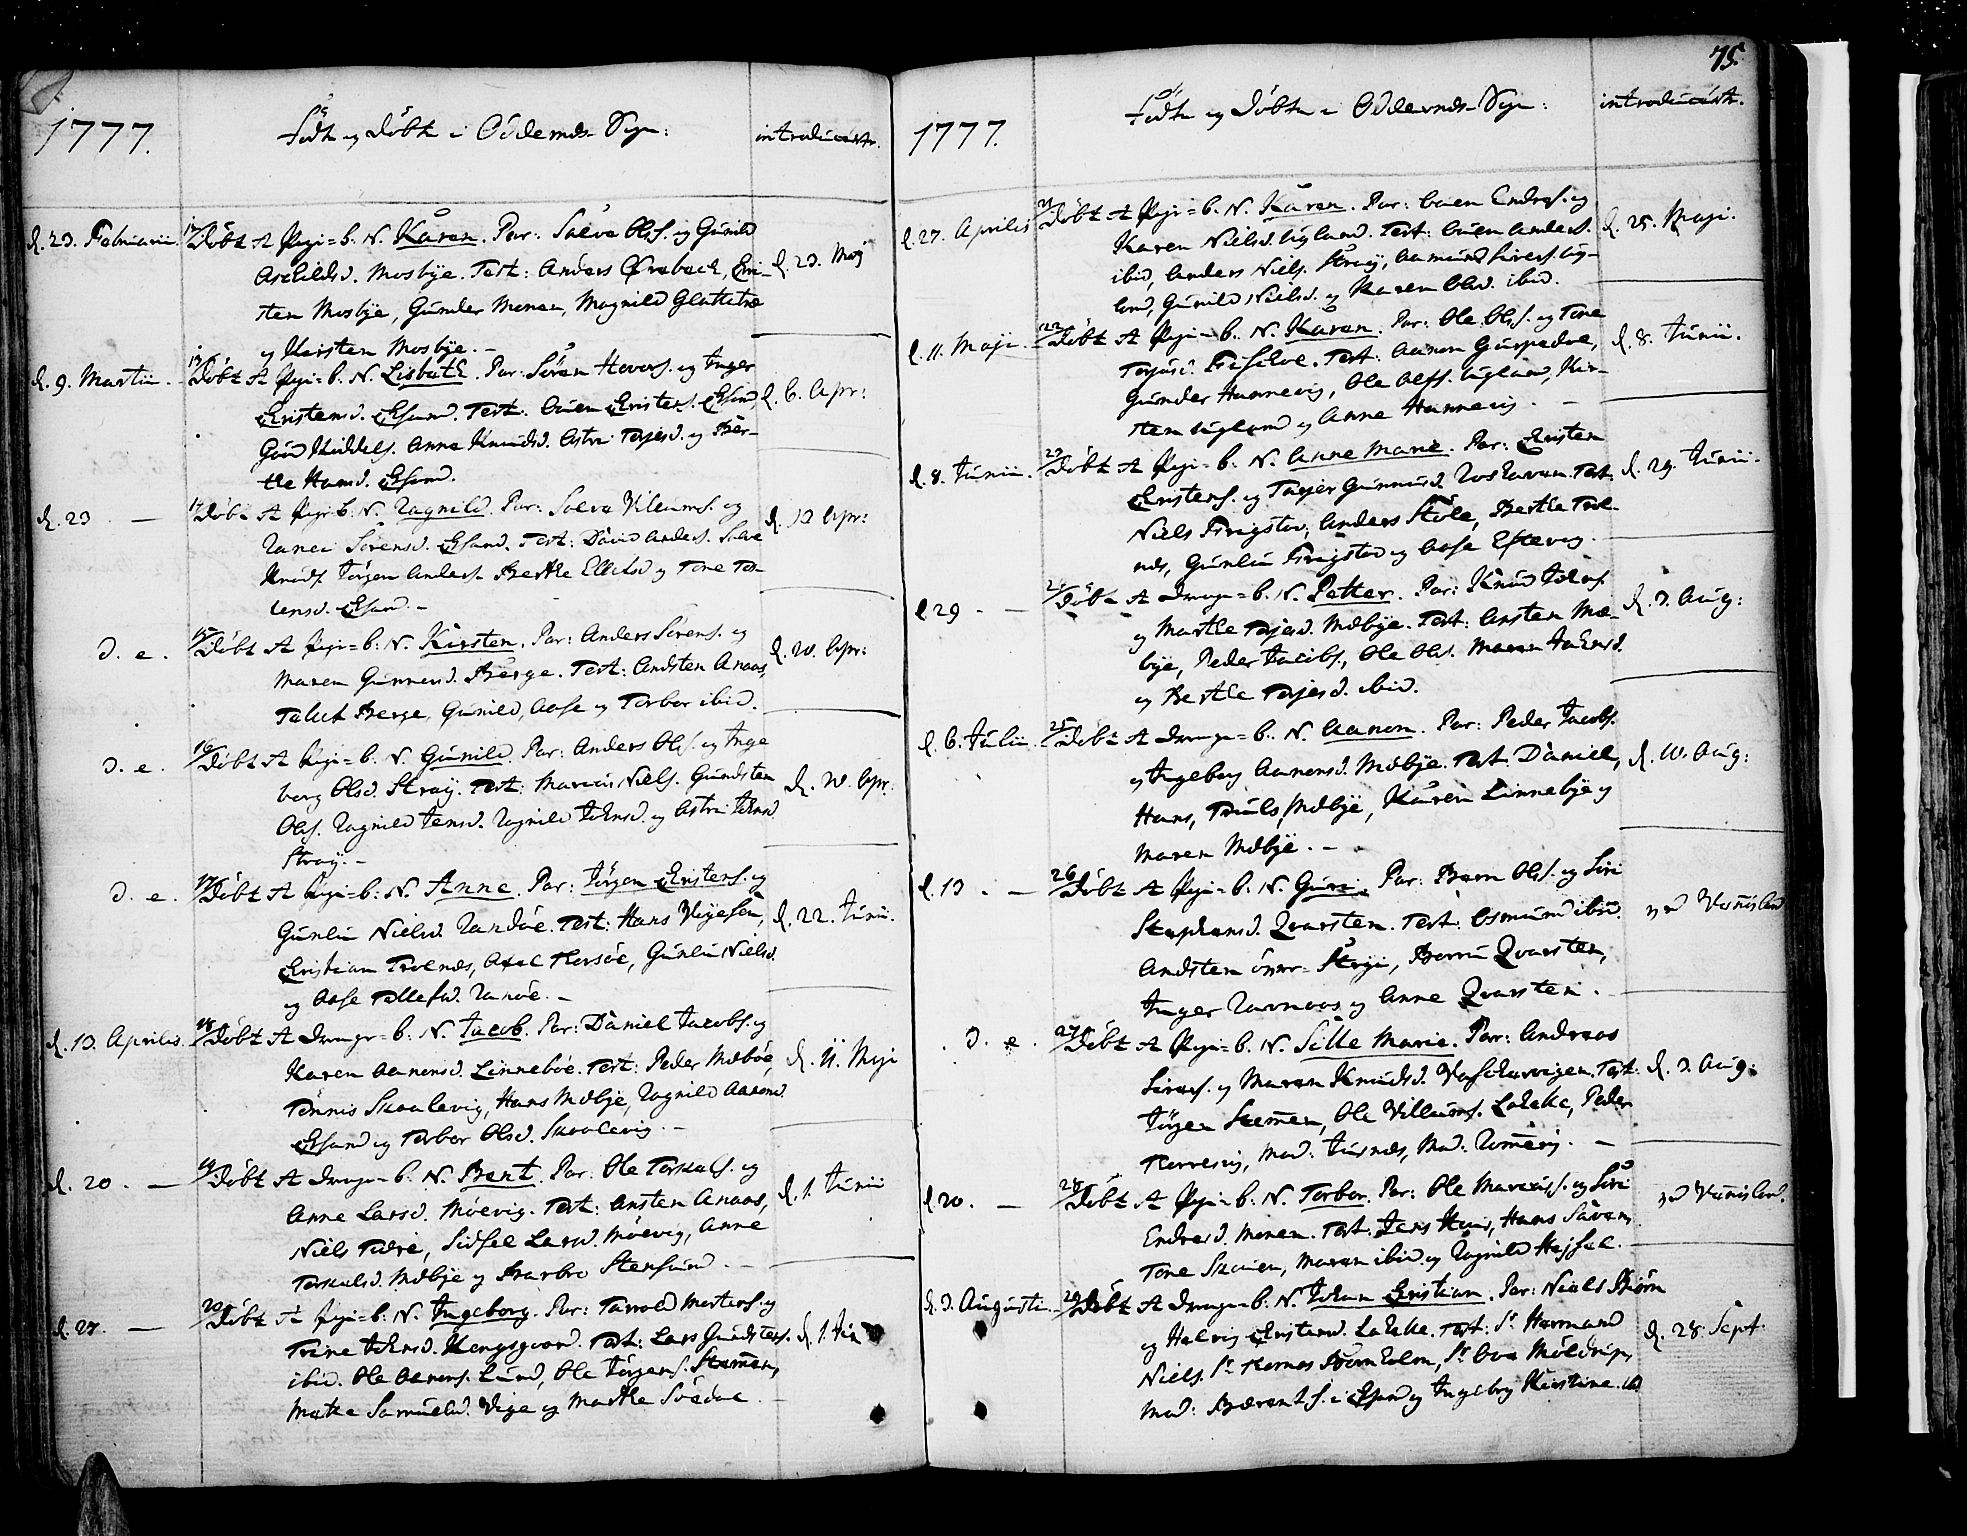 1777.
Födte og Döbte i Oddernes Sogn:
introducerte.
d. 23. Februarii.
12 Döbt et Pige=b. N. Karen. Par: Salve Ols. og Gunild
Aschildsd. Mosbye. Test: Anders Öreback, Chri-
sten Mosbye, Gunder Monen, Magnild Glattetre
og Kirsten Mosbye.
d. 23. Maj
d. 9. Martii.
13 Döbt et Pige=b. N. Lisbeth. Par: Sören Hovors. og Inger
Christensd. Eßund. Test: Ouen Christens. Eßund,
Anne Knudsd. Astri Terjesd. og Ber-
the Hansd. Eßund.
d. 6. Apr:
d. 23 —
14 Döbt et Pige b. N. Ragnild. Par: Salve Villums. og
Sörensd. Eßund. Test: David Anders. Salve
Knuds. Jörgen Anders. Berthe Ellefsd. og Tone
Eßund. —
d. 13 Apr:
d. e.
15 Döbt et Pige=b. N. Kirsten. Par: Anders Sörens. og
Maren Gunnersd. Berge. Test: Andsten Anaas,
Taluf Berge, Gunild, Aase og Torbor ibid.
d. 20. Apr:
d. e.
16 Döbt et Pige=b. N. Gunild. Par: Anders Ols. og Inge
borg Olsd. Stray. Test: Marcus Niels. Gundsten
Ols. Ragnild Jensd. Ragnild Johnsd. og Astri Johnsd.
Stray. —
d. 20. Apr.
d. e.
17 Döbt et Pige=b. N. Anne. Par: Jörgen Christens. og
Gunlu Nielsd. Randöe. Test: Hans Vigesen,
Christian Troenæs, Axel Korsöe, Gunlu Nielsd.
og Aase Tellefsd. Randöe. —
d. 22. Junii.
d. 13. Aprilis.
18 Döbt et Drenge=b. N. Jacob. Par: Daniel Jacobs. og
Karen Aanensd. Linneböe. Test: Peder Meböe,
Tönnis Skaalevig, Hans Mebye, Ragnild Aanensd.
Eßund og Torbor Olsd. Skaalevig. —
d. 11. Maji
d. 20. —
19 Döbt et Drenge=b. N. Bent. Par: Ole Torkels. og
Anne Larsd. Möevig. Test: Ansten Anaas,
Niels Tveie, Sidsel Larsd. Möevig, Anne
Torkelsd. Mebye og Barbro Stensund. —
d. 1. Junii
d. 27. —
20 Döbt et Pige=b. N. Ingeborg. Par: Tarrold Mortens. og
Trine Johnsd. Kongsgaard. Test: Lars Gundsters.
ibid. Ole Aanens. Lund, Ole Jörgens. Stemmen,
Mette Samuelsd. Vige og Marthe Södal. —
d. 1. Jun
75.
1777.
Födte og Döbte i Oddernes Sogn:
introducerte.
d. 27. Aprilis
21 Döbt et Pige=b. N. Karen. Par: Ouen Endres. og
Karen Nielsd. Ugland. Test: Ouen Anders.
ibid, Anders Niels. Stray, Aamund Sivers. Ug-
land, Gunild Nielsd. og Karen Olsd. ibid.
d. 25. Maji.
d. 11. Maji.
22 Döbt et Pige=b. N. Karen. Par: Ole Ols. og Tone
Terjesd. Test: Aanon
Gunder Hannevig, Ole Olss. Ugland, Kir-
sten Ugland og Anne Hannevig. —
d. 8. Junii.
d. 8. Junii.
23 Döbt et Pige=b. N. Anne Marie. Par: Christen
Christens. og Gunnersd. Test.
Niels Frigstad, Anders Ståle, Berthe Troe-
næs, Gunlu Frigstad og Aase Eftevig.
d. 29. Junii.
d. 29. —
24 Döbt et Drenge=b. N. Petter. Par: Knud Johns.
og Marthe Terjesd. Mebye. Test: Ansten Me-
bye, Peder Jacobs., Ole Ols. Maren Johnsd.
og Berthe Terjesd. ibid.
d. 3. Aug:
d. 6. Julii.
25 Döbt et Drenge=b. N. Aanon. Par: Peder Jacobs.
og Ingeborg Aanensd. Mebye. Test. Daniel,
Hans, Truls Mebye, Karen Linnebye og
Maren Mebye. —
d. 10. Aug:
d. 13. —
26 Döbt et Pige=b. N. Guri. Par: Biörn Ols. og Siri
Stephensd. Qvarsten. Test: Osmund ibid.
Andsten övre Strai, Qvarsten,
Inger Ravnaas og Anne Qvarsten. —
d. e.
27 Döbt et Pige=b. N. Sille Marie. Par: Andreas
Sivers. og Maren Knudsd. Test.
Jörgen Stemmen, Ole Villums. Lahelle, Peder
Korsvig, Mad. Mad. —
d. 3. Aug:
d. 20. —
28 Döbt et Pige=b. N. Torbor. Par: Ole Marcus. og Siri
Endresd. Monen. Test: Jens Kuus, Hans
Tone Skauen, Maren ibid. og Ragnild Højsal.
d. 3. Augusti.
29 Döbt et Drenge=b. N. Johan Christian. Par: Niels Biörn
og Helvig Christensd. Lahelle. Test: Sr. Hermand
Niels. Sr. Thomas Bornholm, Sr. Ove Möldrup,
Mad: Berents. i Chrsand og Ingebrg Kirstine ibid
d. 28. Sept.